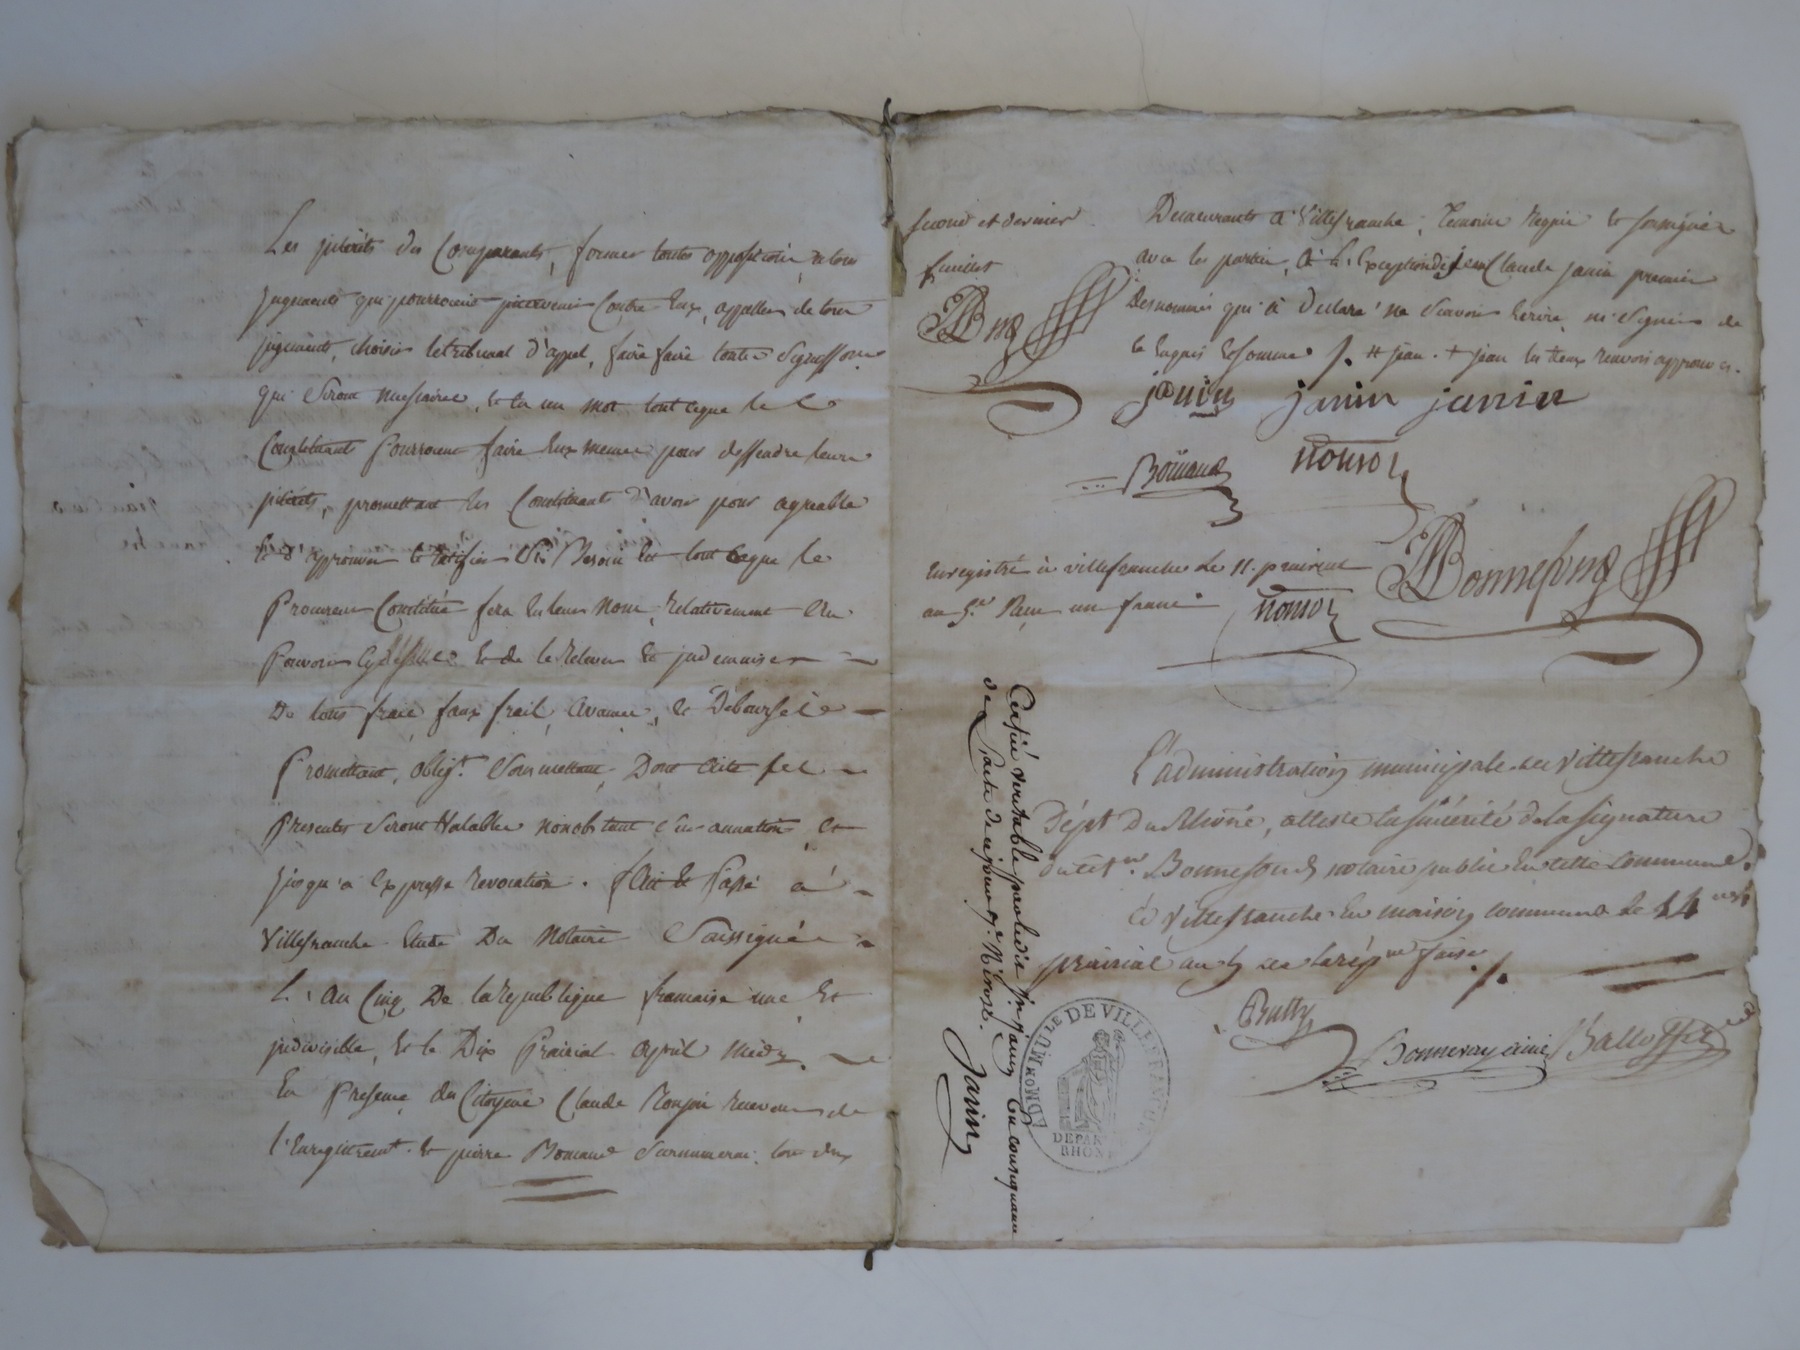 Les interêts des Comparants, former toutes opposition, a tous
jugements qui pourroient intervenir Contre Eux, appeller de tous
jugements, choisir le tribunal d'appel, faire faire toutes Signiffons
qui Seront necessaires, et En un mot tout ceque les
Constituants Pourroient faire Eux memes pour deffendre leurs
interêts, promettant les Constituants d'avoir pour agreable
et d'approuver et ratifier S'il Besoin Est tout ceque le
Procureur Constitué fera En leurs Nom, relativement Au
Pouvoir Cydessus et de le Relever et indemniser
De tous frais, faux frais, avances, et Déboursés
Promettant, oblig.t Soumettant, Dont acte les
Presentes Seront Valables nonobstant Surannation, et
jusqu'a Expresse Revocation. fait et Passé à
Villefranche Etude Du Notaire Soussigné
L'An Cinq De la Republique francaise une Et
indivisible, et le Dix Prairial Après Midy.
En Presence du Citoyens Claude Nonson Receveur de
l'Enregistremt. et pierre Bomand Surnumerai. tous deux
second et dernier
feuillet
Demeurants a Villefranche, Temoins Requis et soussignés
avec les parties, à l'Exception de jean Claude janin premier
Desnommés qui à Déclaré ne Scavoir Ecrire, ni Signer de
ce Enquis et Sommé ⌿ jean . + jean les deux renvois approuvés.
janin janin janin
Bomand nonson
Enregistré à villefranche le 11. prairial
an 5.e Reçu un franc
nonson
Bonnefond
L'administration municipale de Villefranche
Dépt Du Rhône, atteste la sincérité de la signature
du cit.en Bonnefond notaire public En cette Commune.
à Villefranche En maison commune le 14
prairial an 5 de la rép.que faise
Butty
Bonnevay ainé
Certifié veritable par le dit jn janin En consequence
de l'acte de ce jour 7.e Nivose.
Janin
DE VILLEFRANCHE
DEPAR
RHONE